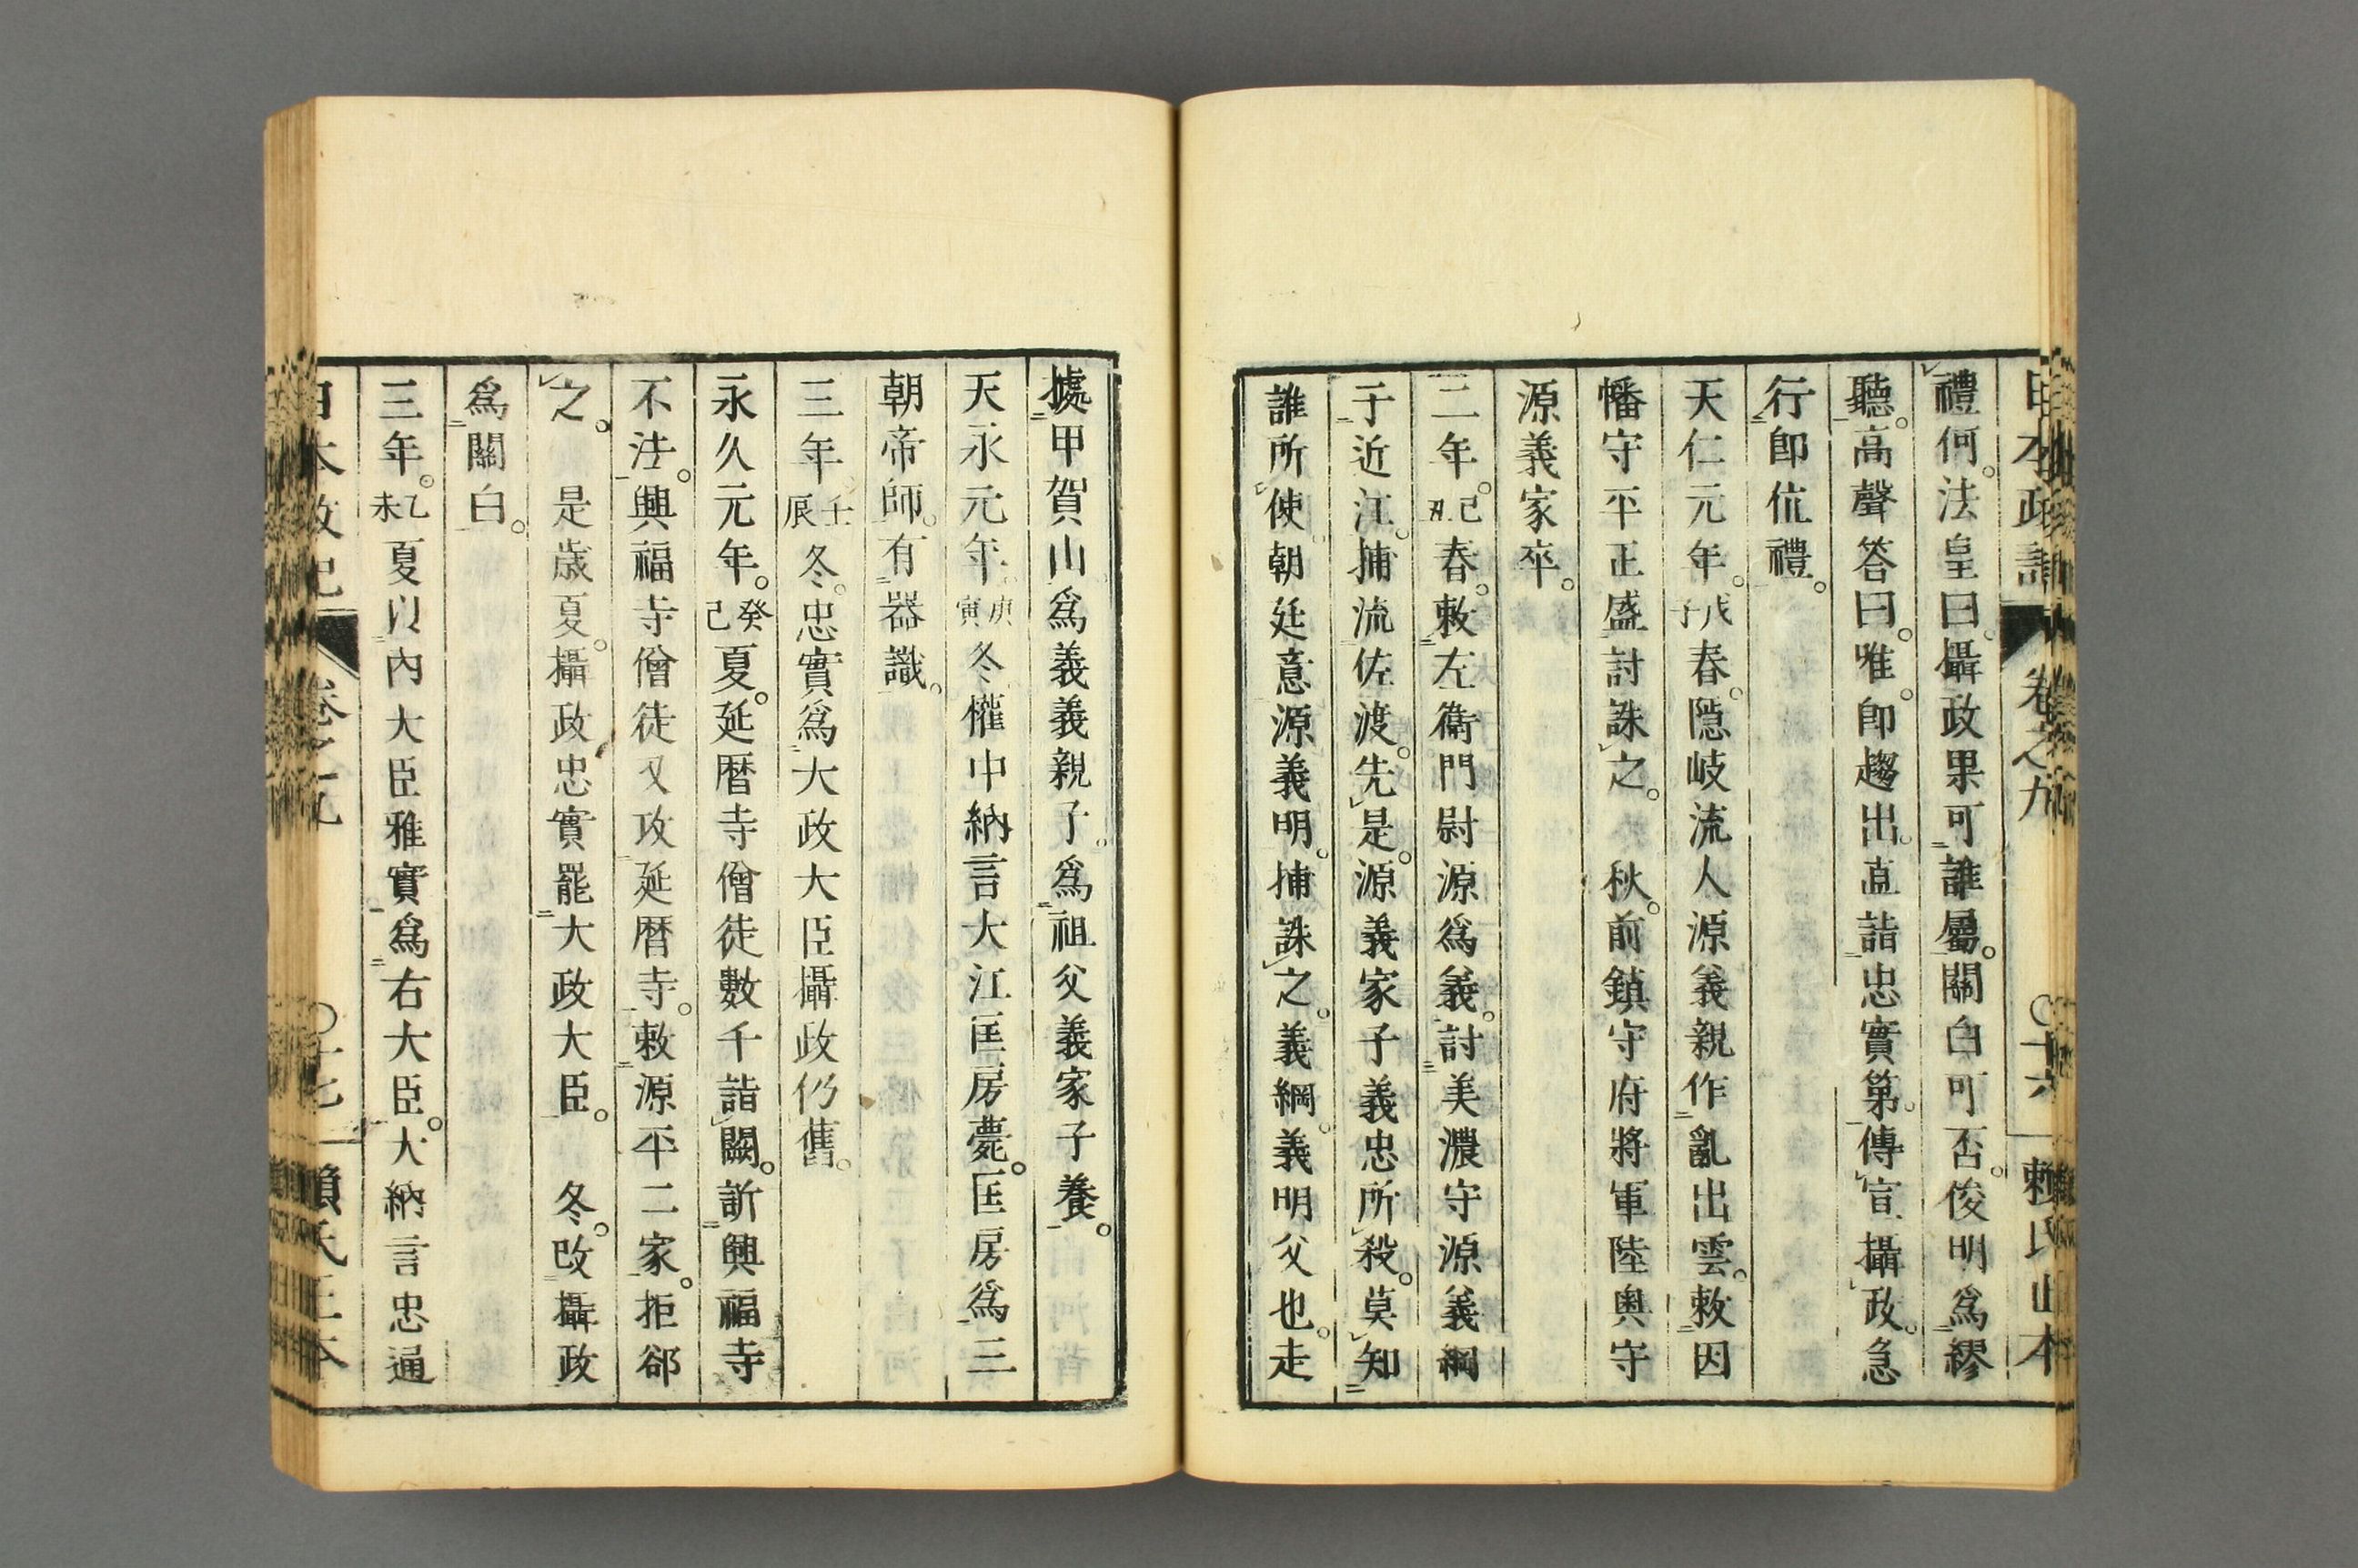 日本政記 卷之九 〇十六 賴氏正本
禮何。法皇曰。攝政果可誰屬。關白可否。俊明爲繆
聽。高聲答曰。唯。卽趨出。直詣忠實第。傳宣攝政。急
行卽位禮。
天仁元年。戊子春。隱岐流人源義親作亂出雲。敕因
幡守平正盛討誅之。秋。前鎮守府將軍陸奧守
源義家卒。
二年。己丑春。敕左衞門尉源爲義。討美濃守源義綱
于近江。捕流佐渡。先是。源義家子義忠所殺。莫知
誰所使朝廷意源義明。捕誅之。義綱。義明父也。走
據甲賀山爲義義親子。爲祖父義家子養。
天永元年。庚寅冬權中納言大江匡房薨。匡房爲三
朝帝師。有器識。
三年壬辰冬。忠實爲大政大臣攝政仍舊。
永久元年。癸巳夏。延曆寺僧徒數千詣闕。訴興福寺
不法。興福寺僧徒又攻延曆寺。敕源平二家。拒郤
之。是歲夏。攝政忠實罷大政大臣。冬。改攝政
爲關白。
三年。乙未夏以內大臣雅實爲右大臣。大納言忠通
日本政記 卷之九 〇十七 賴氏正本